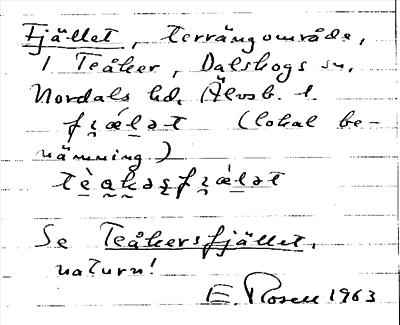 Fjället, terrängområde,
i Teåker, Dalskogs sn,
Nordals hd. Älvsb. l.
(lokal be-
nämning.)
Se Teåkersfjället,
naturn!
E. Rosell 1963